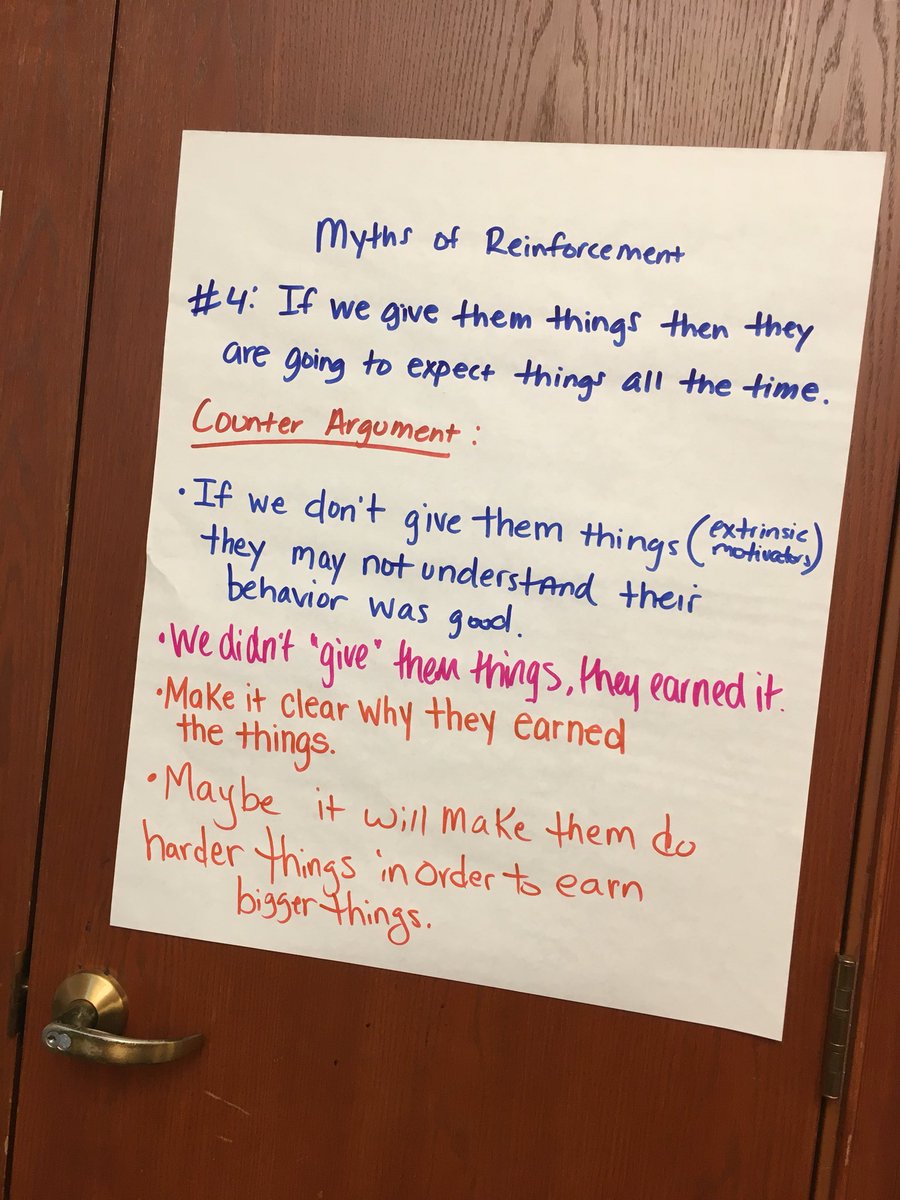 Myths of Reinforcement
#4: If we give them things then they
are going to expect things all the time.
Counter Argument:
• If we don't give them things (extrinsic motivators)
they may not understand their
behavior was good.
• We didn't "give" them things, they earned it.
• Make it clear why they earned
the things.
• Maybe it will make them do
harder things in order to earn
bigger things.